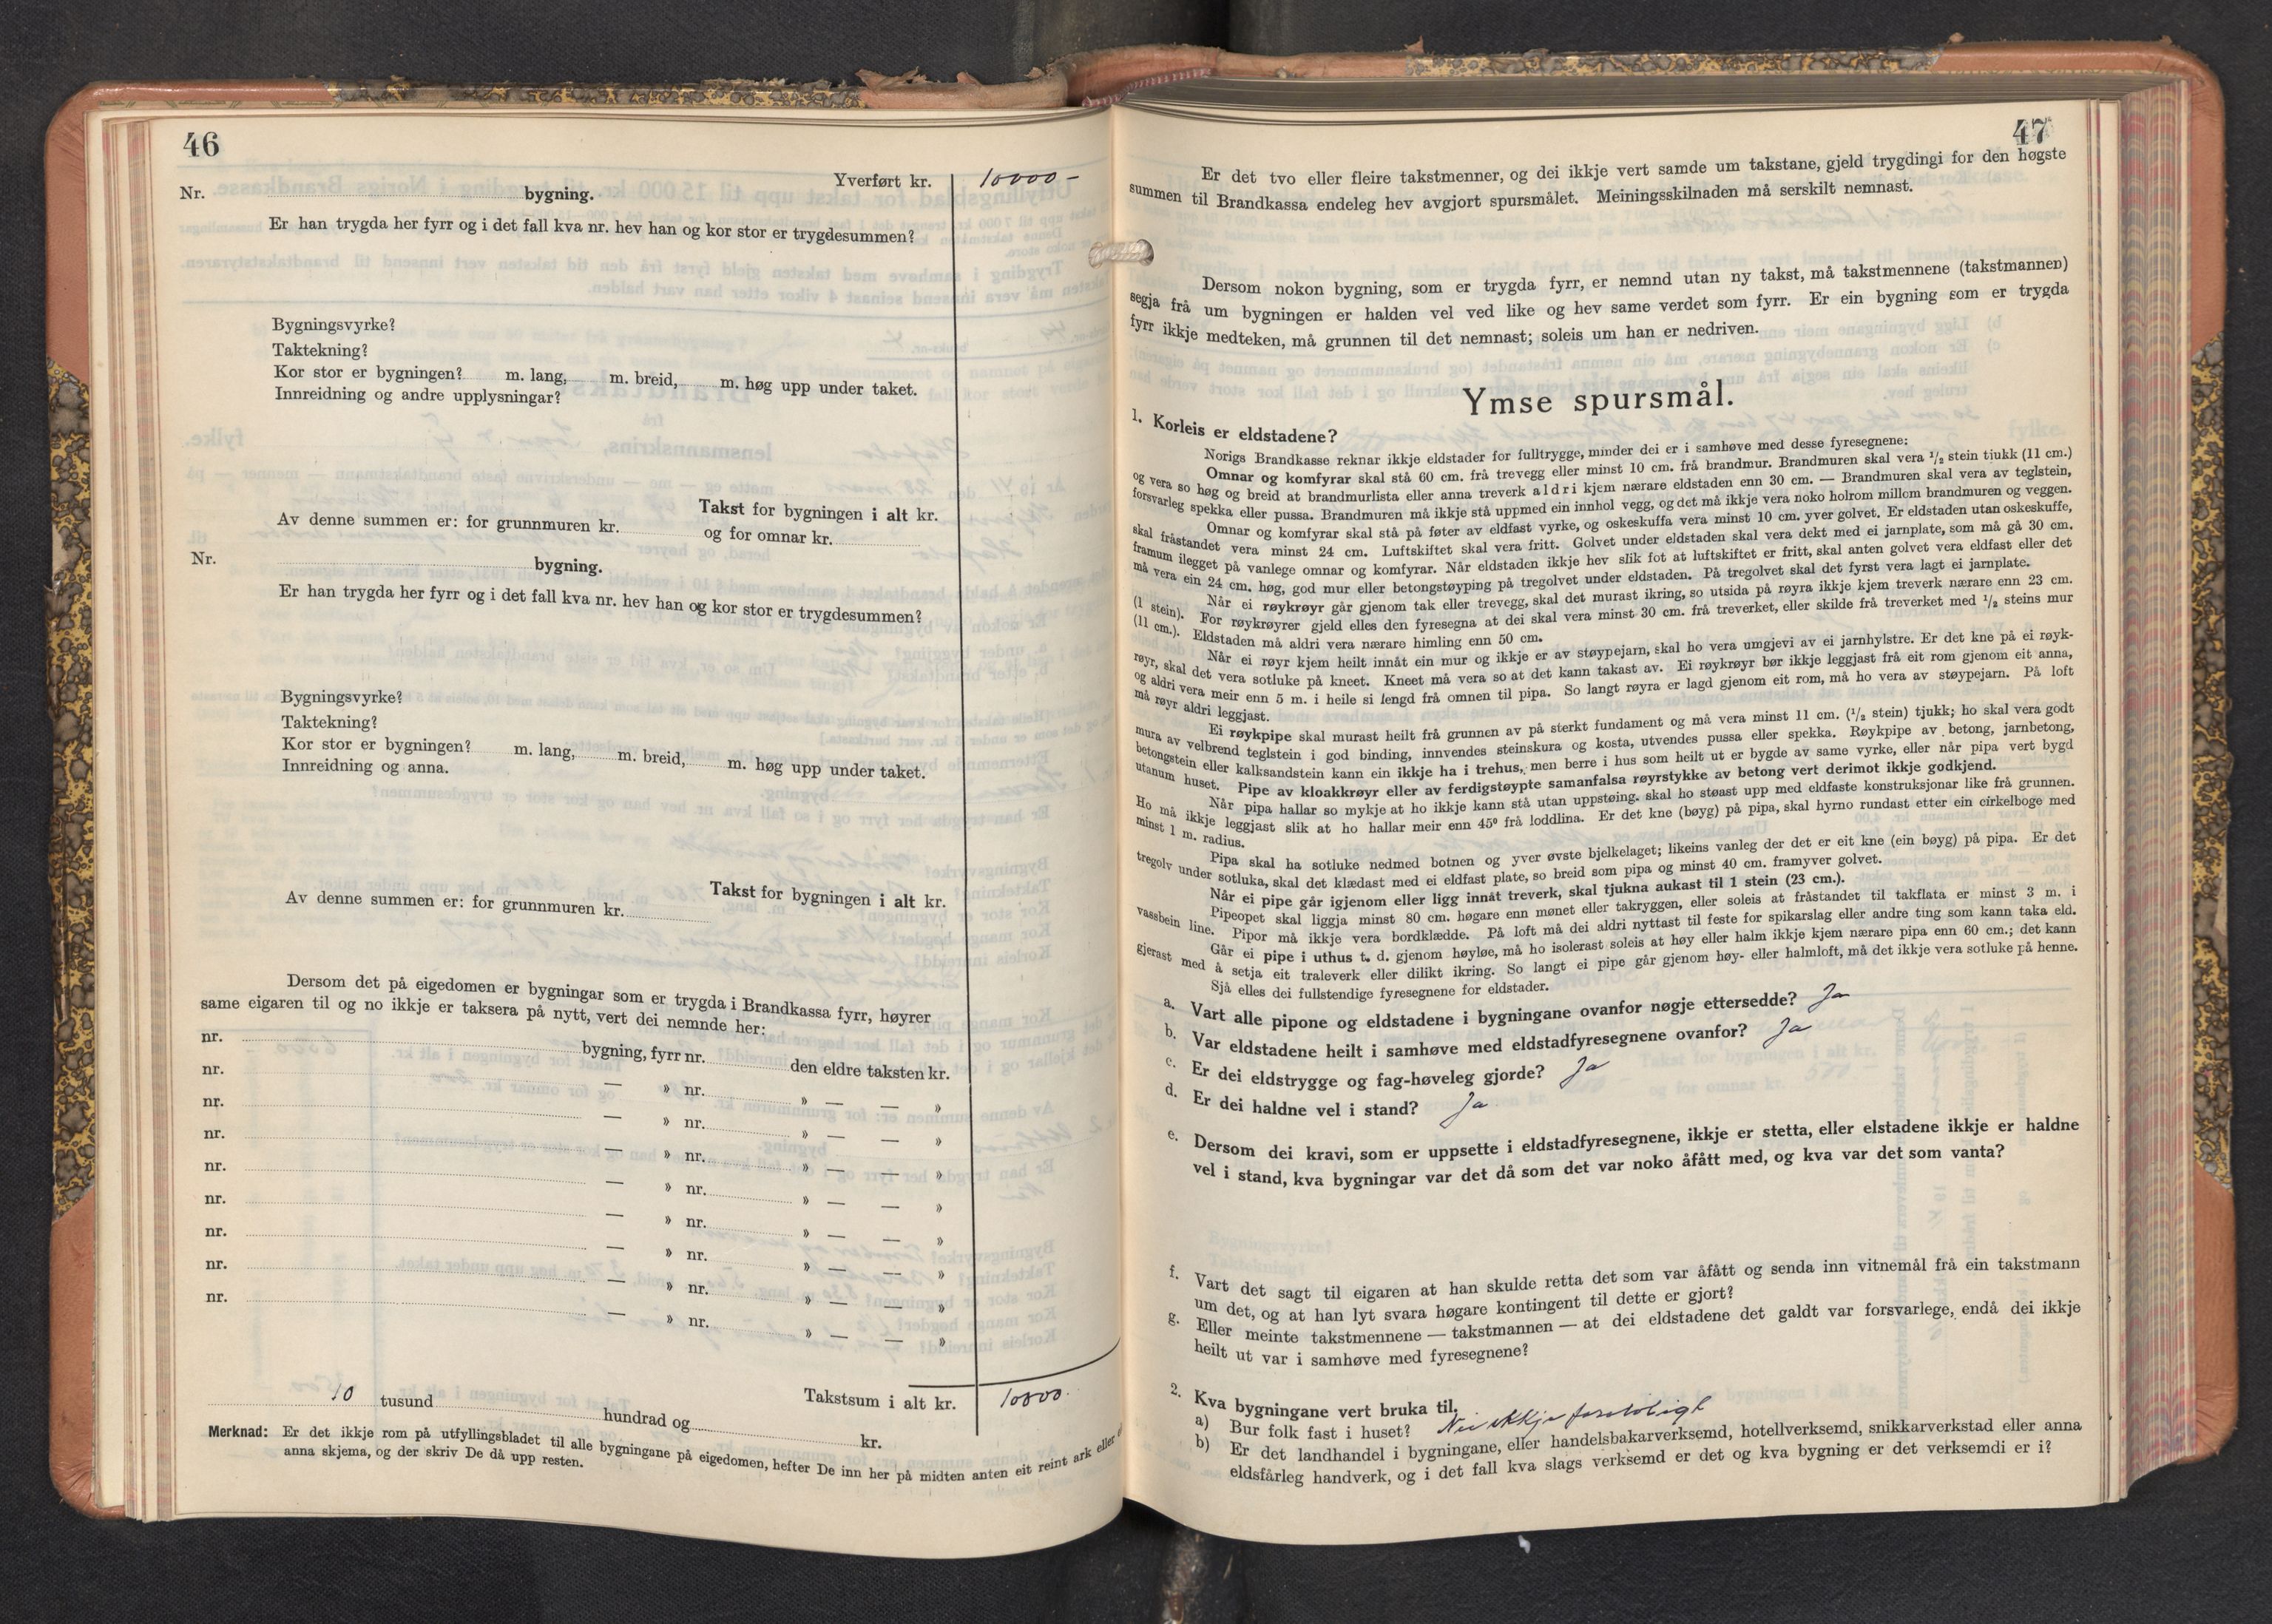 46
Yverført kr. 10000-
Nr. bygning.
Er han trygda her fyrr og i det fall kva nr. hev han og kor stor er trygdesummen?
Bygningsvyrke?
Taktekning?
Kor stor er bygningen? m. lang, m. breid, m. høg upp under taket.
Innreidning og andre upplysningar?
Takst for bygningen i alt kr.
Av denne summen er: for grunnmuren kr. og for omnar kr.
Nr. bygning.
Er han trygda her fyrr og i det fall kva nr. hev han og kor stor er trygdesummen?
Bygningsvyrke?
Taktekning?
Kor stor er bygningen? m. lang, m. breid, m. høg upp under taket.
Innreidning og anna.
Takst for bygningen i alt kr.
Av denne summen er: for grunnmuren kr.
Dersom det på eigedomen er bygningar som er trygda i Brandkassa fyrr, høyrer
same eigaren til og no ikkje er taksera på nytt, vert dei nemnde her:
nr. bygning, fyrr nr. den eldre taksten kr.
nr. — » nr. » — — »
nr. — » nr. » — — »
nr. — » nr. » — — »
nr. — » nr. » — — »
nr. — » nr. » — — »
nr. — » nr. » — — »
nr. — » nr. » — — »
nr. — » nr. » — — »
Takstsum i alt kr. 10000.
10 tusund hundrad og kr.
Merknad: Er det ikkje rom på utfyllingsbladet til alle bygningane på eigedomen, hefter De inn her på midten anten eit reint ark eller
anna skjema, og der skriv De då upp resten.
47
Er det tvo eller fleire takstmenner, og dei ikkje vert samde um takstane, gjeld trygdingi for den høgste
summen til Brandkassa endeleg hev avgjort spursmålet. Meiningsskilnaden må serskilt nemnast.
Dersom nokon bygning, som er trygda fyrr, er nemnd utan ny takst, må takstmennene (takstmannen)
segja frå um bygningen er halden vel ved like og hev same verdet som fyrr. Er ein bygning som er trygda
fyrr ikkje medteken, må grunnen til det nemnast; soleis um han er nedriven.
Ymse spursmål.
1. Korleis er eldstadene?
Norigs Brandkasse reknar ikkje eldstader for fulltrygge, minder dei er i samhøve med desse fyresegnene:
Omnar og komfyrar skal stå 60 cm. frå trevegg eller minst 10 cm. frå brandmur. Brandmuren skal vera ½ stein tjukk (11 cm.)
og vera so høg og breid at brandmurlista eller anna treverk aldri kjem nærare eldstaden enn 30 cm. — Brandmuren skal vera av teglstein,
forsvarleg spekka eller pussa. Brandmuren må ikkje stå uppmed ein innhol vegg, og det må ikkje vera noko holrom millom brandmuren og veggen.
Omnar og komfyrar skal stå på føter av eldfast vyrke, og oskeskuffa vera minst 10 cm. yver golvet. Er eldstaden utan oskeskuffe,
skal fråstandet vera minst 24 cm. Luftskiftet skal vera fritt. Golvet under eldstaden skal vera dekt med ei jarnplate, som må gå 30 cm.
framum ilegget på vanlege omnar og komfyrar. Når eldstaden ikkje hev slik fot at luftskiftet er fritt, skal anten golvet vera eldfast eller det
må vera ein 24 cm. høg, god mur eller betongstøyping på tregolvet under eldstaden. På tregolvet skal det fyrst vera lagt ei jarnplate.
Når ei røykrøyr går gjenom tak eller trevegg, skal det murast ikring, so utsida på røyra ikkje kjem treverk nærare enn 23 cm.
(1 stein). For røykrøyrer gjeld elles den fyresegna at dei skal vera minst 30 cm. frå treverket, eller skilde frå treverket med ½ steins mur
(11 cm.). Eldstaden må aldri vera nærare himling enn 50 cm.
Når ei røyr kjem heilt innåt ein mur og ikkje er av støypejarn, skal ho vera umgjevi av ei jarnhylstre. Er det kne på ei røyk-
røyr, skal det vera sotluke på kneet. Kneet må vera so at det kann takast av. Ei røykrøyr bør ikkje leggjast frå eit rom gjenom eit anna,
og aldri vera meir enn 5 m. i heile si lengd frå omnen til pipa. So langt røyra er lagd gjenom eit rom, må ho vera av støypejarn. På loft
må røyr aldri leggjast.
Ei røykpipe skal murast heilt frå grunnen av på sterkt fundament og må vera minst 11 cm. (½ stein) tjukk; ho skal vera godt
mura av velbrend teglstein i god binding, innvendes steinskura og kosta, utvendes pussa eller spekka. Røykpipe av betong, jarnbetong,
betongstein eller kalksandstein kann ein ikkje ha i trehus, men berre i hus som heilt ut er bygde av same vyrke, eller når pipa vert bygd
utanum huset. Pipe av kloakkrøyr eller av ferdigstøypte samanfalsa røyrstykke av betong vert derimot ikkje godkjend.
Når pipa hallar so mykje at ho ikkje kann stå utan uppstøing, skal ho støast upp med eldfaste konstruksjonar like frå grunnen.
Ho må ikkje leggjast slik at ho hallar meir enn 45º frå loddlina. Er det kne (bøyg) på pipa, skal hyrno rundast etter ein cirkelboge med
minst 1 m. radius.
Pipa skal ha sotluke nedmed botnen og yver øvste bjelkelaget; likeins vanleg der det er eit kne (ein bøyg) på pipa. Er det
tregolv under sotluka, skal det klædast med ei eldfast plate, so breid som pipa og minst 40 cm. framyver golvet.
Når ei pipe går igjenom eller ligg innåt treverk, skal tjukna aukast til 1 stein (23 cm.).
Pipeopet skal liggja minst 80 cm. høgare enn mønet eller takryggen, eller soleis at fråstandet til takflata er minst 3 m. i
vassbein line. Pipor må ikkje vera bordklædde. På loft må dei aldri nyttast til feste for spikarslag eller andre ting som kann taka eld.
Går ei pipe i uthus t. d. gjenom høyløe, må ho isolerast soleis at høy eller halm ikkje kjem nærare pipa enn 60 cm.; det kann
gjerast med å setja eit traleverk eller dilikt ikring. So langt ei pipe går gjenom høy- eller halmloft, må det ikkje vera sotluke på henne.
Sjå elles dei fullstendige fyresegnene for eldstader.
a. Vart alle pipone og eldstadene i bygningane ovanfor nøgje ettersedde? Ja
b. Var eldstadene heilt i samhøve med eldstadfyresegnene ovanfor? Ja
c. Er dei eldstrygge og fag-høveleg gjorde? Ja
d. Er dei haldne vel i stand? Ja
e. Dersom dei kravi, som er uppsette i eldstadfyresegnene, ikkje er stetta, eller elstadene ikkje er haldne
vel i stand, kva bygningar var det då som det var noko åfått med, og kva var det som vanta?
f. Vart det sagt til eigaren at han skulde retta det som var åfått og senda inn vitnemål frå ein takstmann
um det, og at han lyt svara høgare kontingent til dette er gjort?
g. Eller meinte takstmennene — takstmannen — at dei eldstadene det galdt var forsvarlege, endå dei ikkje
heilt ut var i samhøve med fyresegnene?
2. Kva bygningane vert bruka til.
a) Bur folk fast i huset? Nei ikkje foreløbigt
b) Er det landhandel i bygningane, eller handelsbakarverksemd, hotellverksemd, snikkarverkstad eller anna
eldsfårleg handverk, og i det fall kva slags verksemd er det og kva bygning er det verksemdi er i?